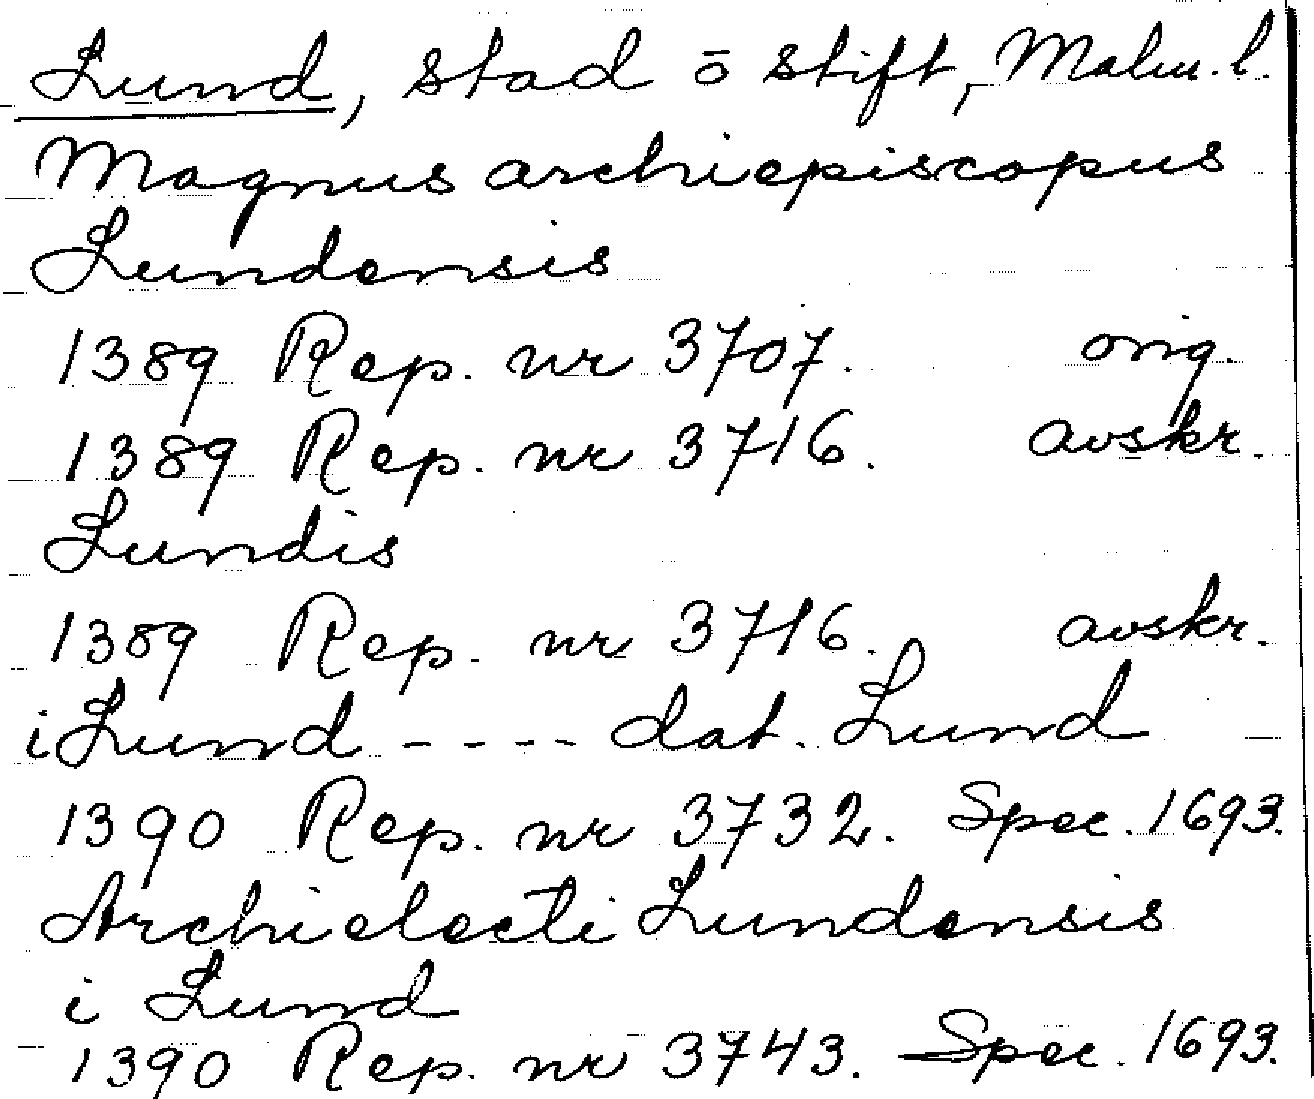 Lund, stad ō stift, Malm. l.
Magnus archiepiscopus
Lundensis
1389 Rep. nr 3707. orig.
1389 Rep. nr 3716. avskr.
Lundis
1389 Rep. nr 3716. avskr.
i Lund - - - - dat. Lund
1390 Rep. nr 3732. Spec. 1693.
Archielecti Lundensis
i Lund
1390 Rep. nr 3743. Spec. 1693.